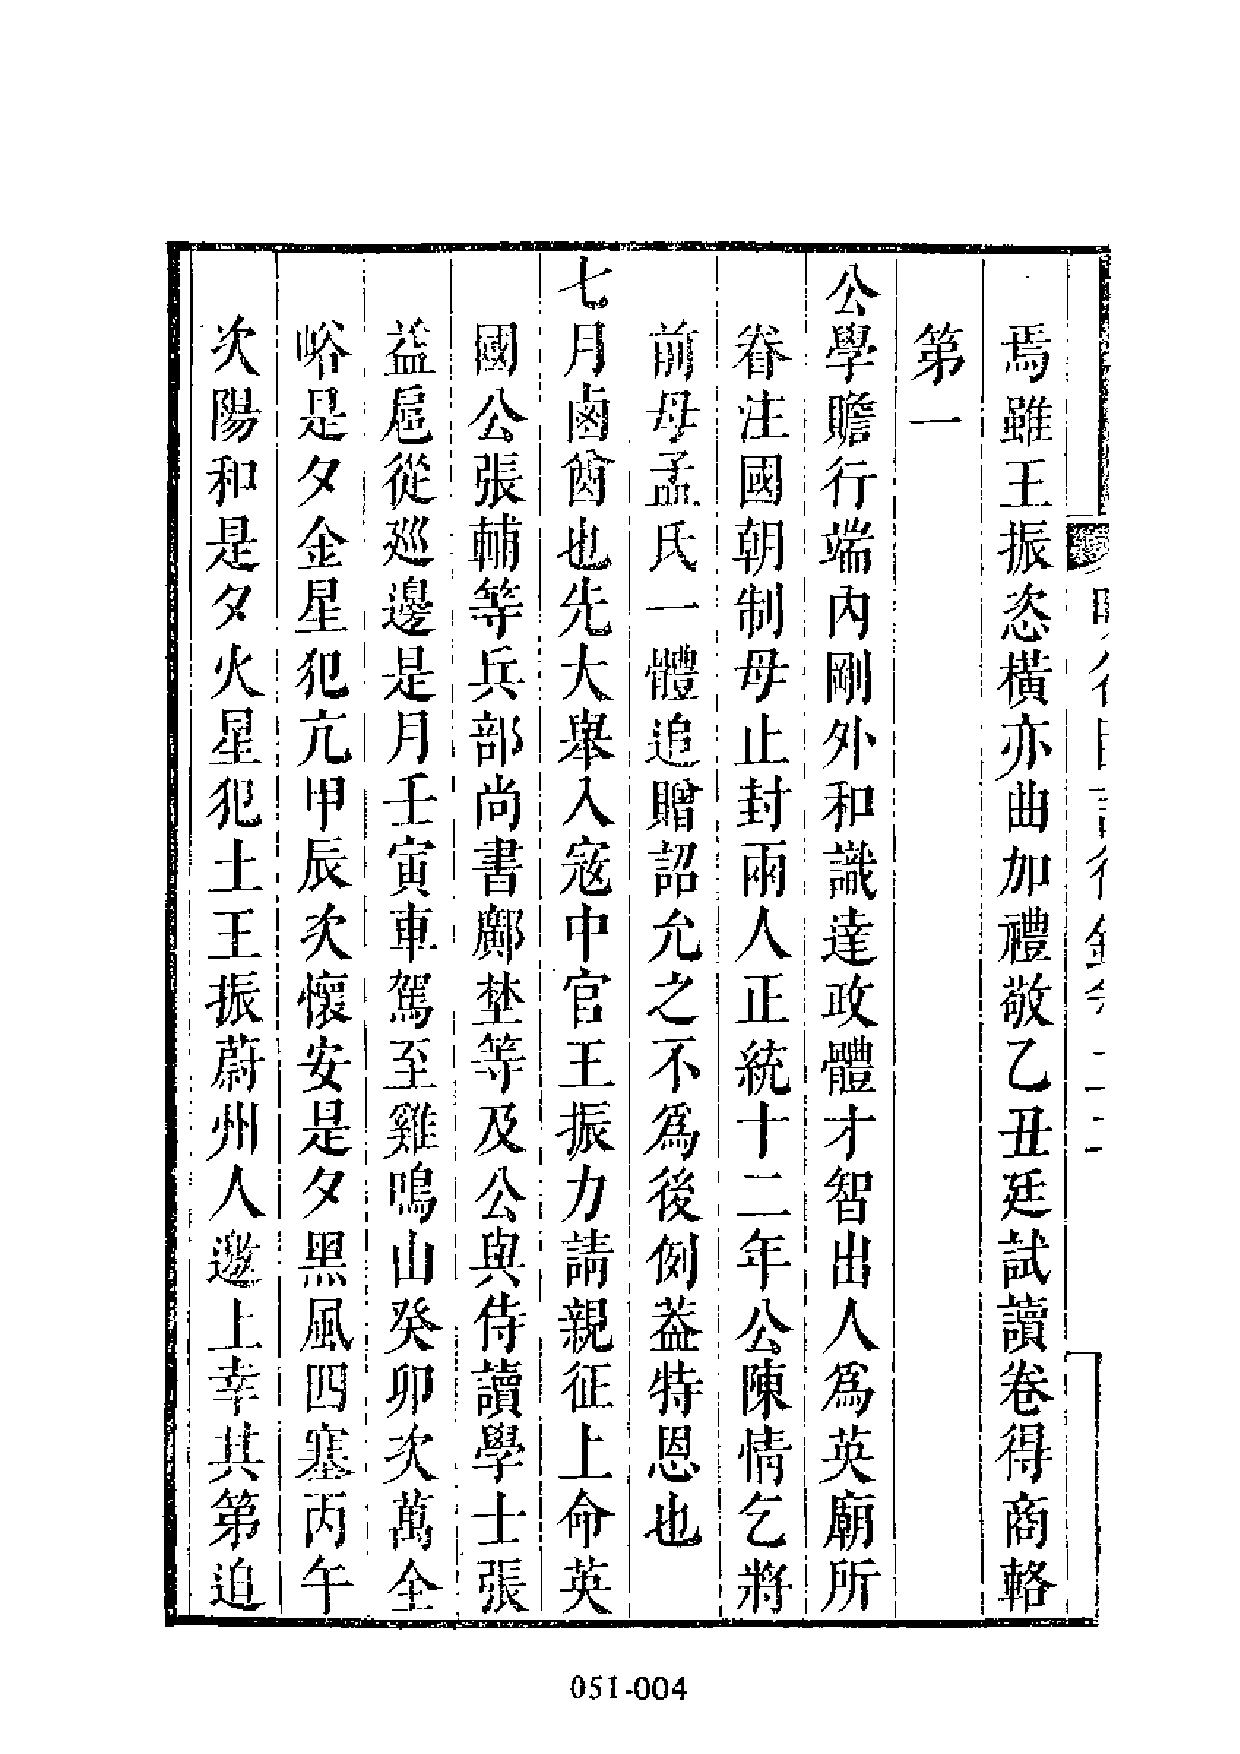 焉雖王振恣橫亦曲加禮敬乙丑廷試讀卷得商輅
第一
公學贍行端內剛外和識達政體才智出人爲英廟所
眷注國朝制母止封兩人正統十二年公陳情乞將
前母孟氏一體追贈詔允之不爲後例葢特恩也
七月鹵酋也先大舉入寇中官王振力請親征上命英
國公張輔等兵部尚書鄺埜等及公與侍讀學士張
益扈從巡邊是月壬寅車駕至雞鳴山癸卯次萬全
峪是夕金星犯亢甲辰次懷安是夕黑風四塞丙午
次陽和是夕火星犯土王振蔚州人邀上幸其第追
051-004